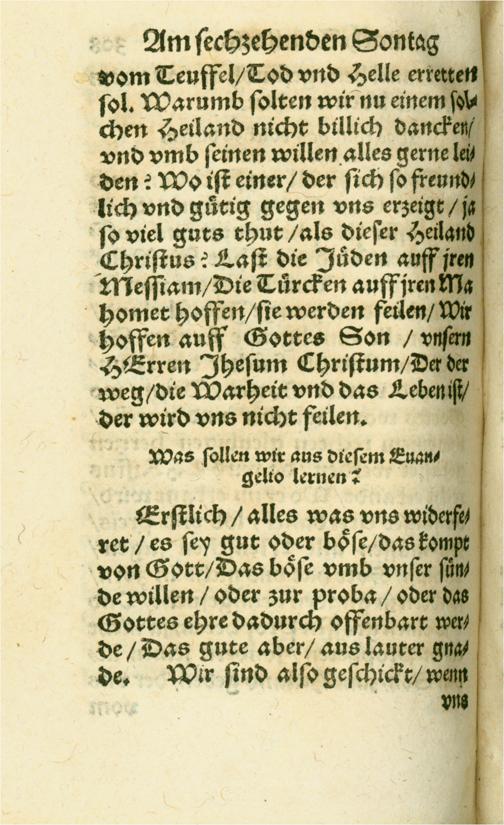 Am sechzehenden Sontag
vom Teuffel/Tod vnd Helle erretten
sol. Warumb solten wir nu einem sol⸗
chen Heiland nicht billich dancken/
vnd vmb seinen willen alles gerne lei⸗
den? Wo ist einer/ der sich so freund⸗
lich vnd gütig gegen vns erzeigt/ ja
so viel guts thut/als dieser Heiland
Christus? Last die Jüden auff jren
Messiam/Die Türcken auff jren Ma
homet hoffen/sie werden feilen/ Wir
hoffen auff Gottes Son / vnsern
HErren Jhesum Christum/Der der
weg/die Warheit vnd das Leben ist/
der wird vns nicht feilen.
Was sollen wir aus diesem Euan⸗
gelio lernen?
Erstlich / alles was vns widerfe⸗
ret / es sey gut oder böse/das kompt
von Gott/Das böse vmb vnser sün⸗
de willen / oder zur proba / oder das
Gottes ehre dadurch offenbart wer⸗
de / Das gute aber/ aus lauter gna⸗
de. Wir sind also geschickt/ wenn
vns